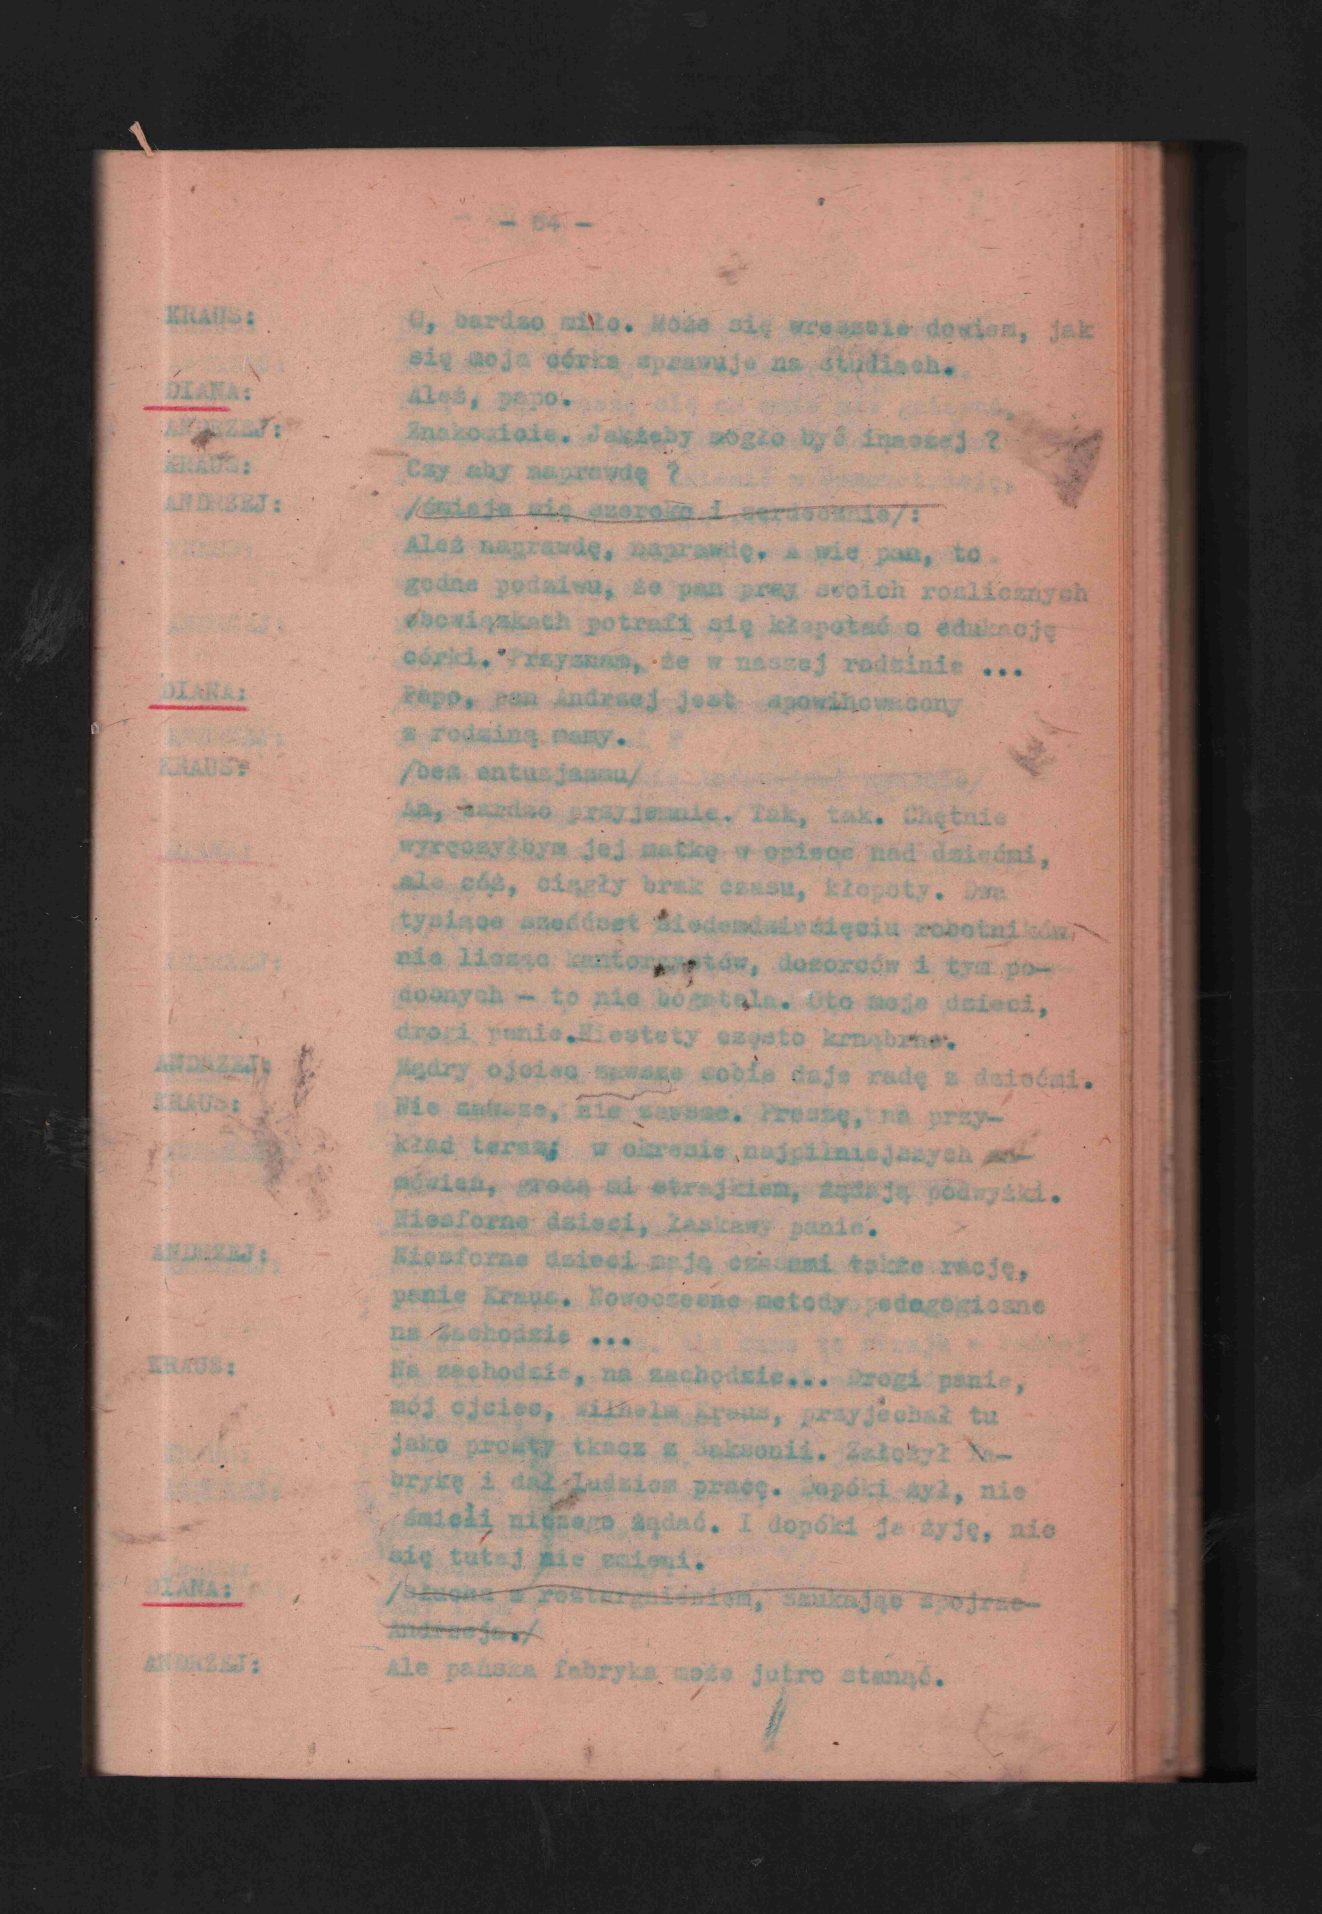 - 64 -
KRAUS: O, bardzo miło. Może się wreszcie dowiem, jak
się moja córka sprawuje na studiach.
DIANA: Ależ, papo.
ANDRZEJ: Znakomicie. Jakżeby mogło być inaczej ?
KRAUS: Czy aby naprawdę ?
ANDRZEJ: /śmieje się szeroko i serdecznie/:
Ależ naprawdę, naprawdę. A wie pan, to
godne podziwu, że pan przy swoich rozlicznych
obowiązkach potrafi się kłopotać o edukację
córki. Przyznam, że w naszej rodzinie ...
DIANA: Papo, pan Andrzej jest spowinowacony
z rodziną mamy.
KRAUS: /bez entuzjazmu/
Aa, bardzo przyjemnie. Tak, tak. Chętnie
wyręczyłbym jej matkę w opiece nad dziećmi,
ale cóż, ciągły brak czasu, kłopoty. Dwa
tysiące sześćset siedemdziesięciu robotników,
nie licząc kantorzystów, dozorców i tym po-
dobnych - to nie bagatela. Oto moje dzieci,
drogi panie.Niestety często krnąbrne.
ANDRZEJ: Mądry ojciec zawsze sobie daje radę z dziećmi.
KRAUS: Nie zawsze, nie zawsze. Proszę, na przy-
kład teraz, w okresie najpilniejszych za-
mówień, grożą mi strajkiem, żądają podwyżki.
Niesforne dzieci, łaskawy panie.
ANDRZEJ: Niesforne dzieci mają czasami także rację,
panie Kraus. Nowoczesne metody pedagogiczne
na Zachodzie ...
KRAUS: Na zachodzie, na zachodzie... Drogi panie,
mój ojciec, Wilhelm Kraus, przyjechał tu
jako prosty tkacz z Saksonii. Założył fa-
brykę i dał ludziom pracę. Dopóki żył, nie
śmieli niczego żądać. I dopóki ja żyję, nic
się tutaj nie zmieni.
DIANA: /słucha z roztargnieniem, szukając spojrze-
Andrzeja./
ANDRZEJ: Ale pańska fabryka może jutro stanąć.